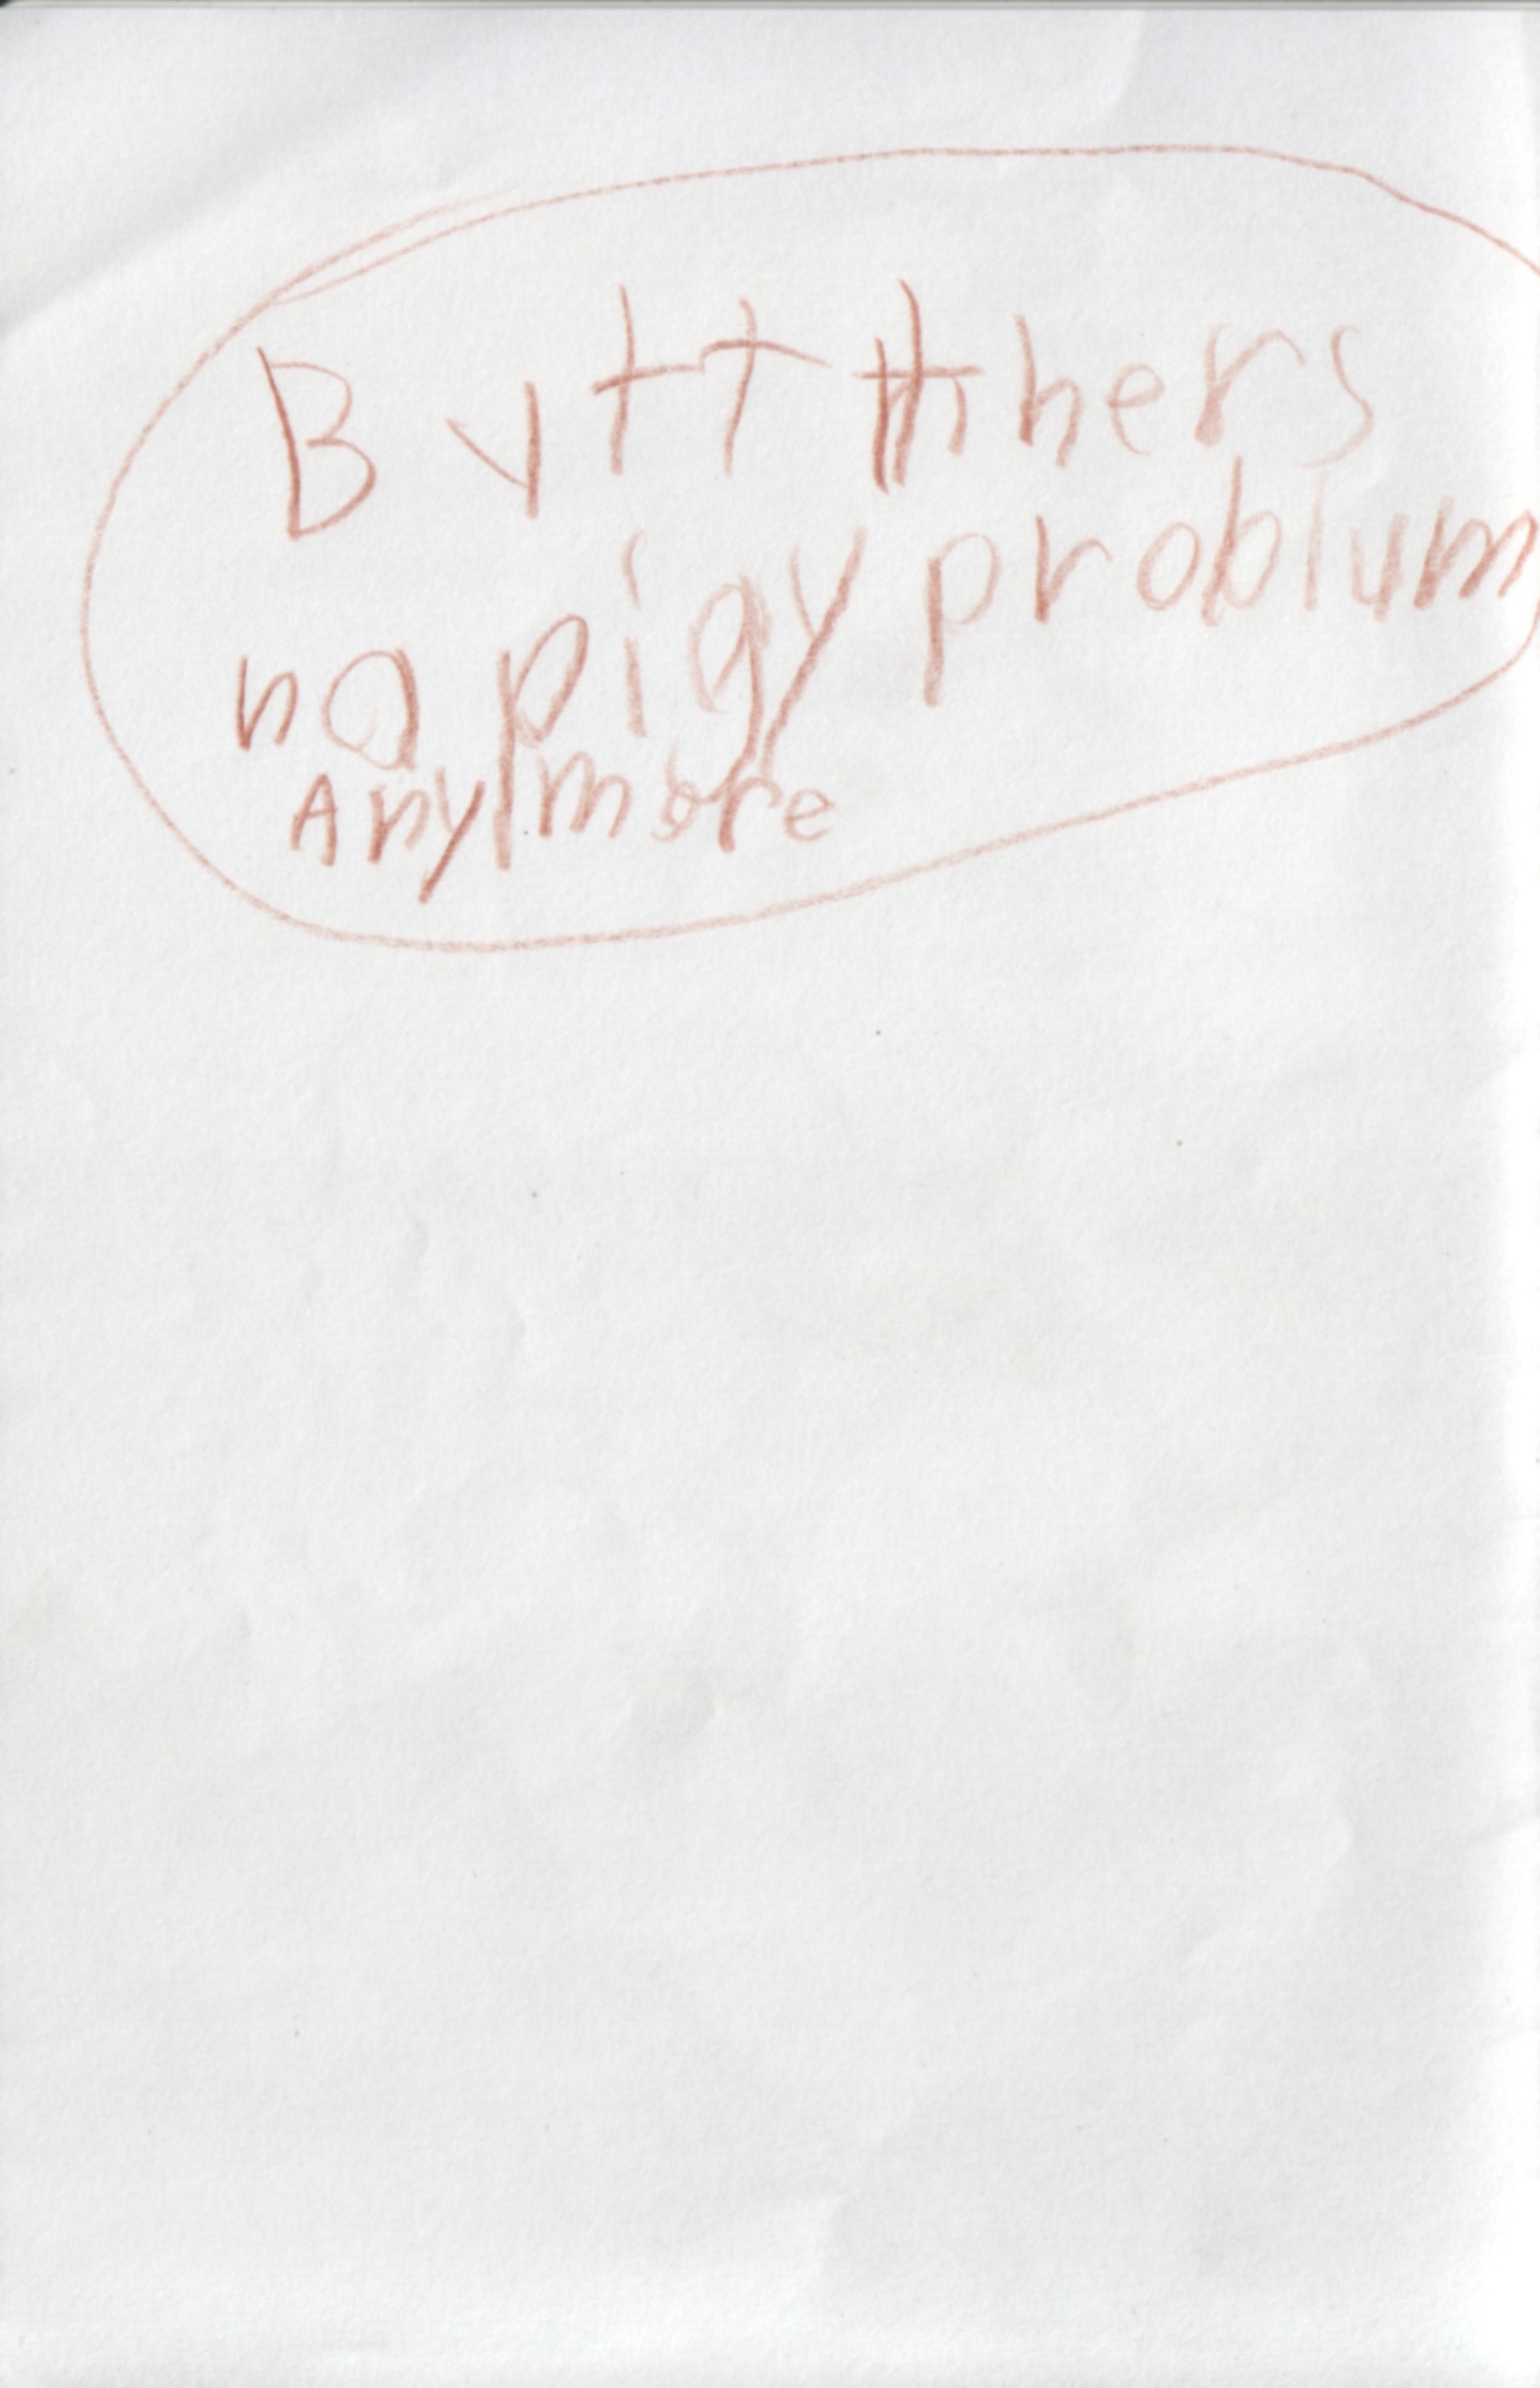 Butt thers
no pigy problum
Any more